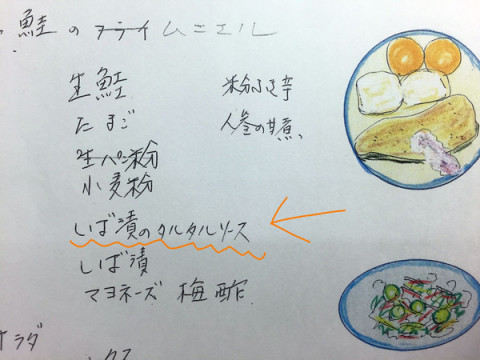 鮭のフライムニエル
生鮭　粉ふき芋
たまご　人参の甘煮
生パン粉
小麦粉
しば漬のタルタルソース
しば漬
マヨネーズ 梅酢
サラダ